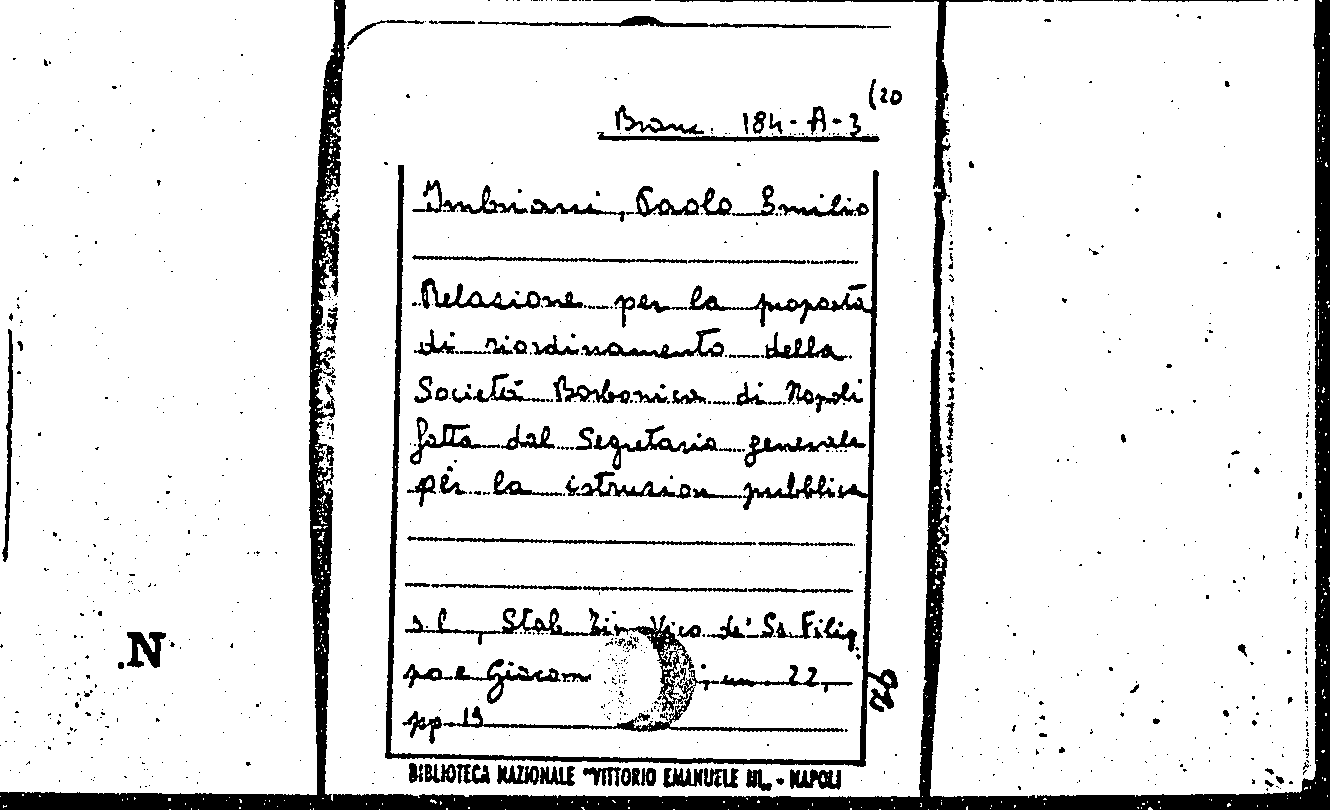 (20
Branc. 184-A-3
Imbriani, Paolo Emilio
Relazione per la proposta
di riordinamento della
Società Borbonica di Napoli
fatta dal Segretario generale
per la istruzion pubblica
s.l., Stab. Vico de' Ss. Filip
po e Giacom 22,
pp. 19
BIBLIOTECA NAZIONALE "VITTORIO EMANUELE III„ - NAPOLI
.N